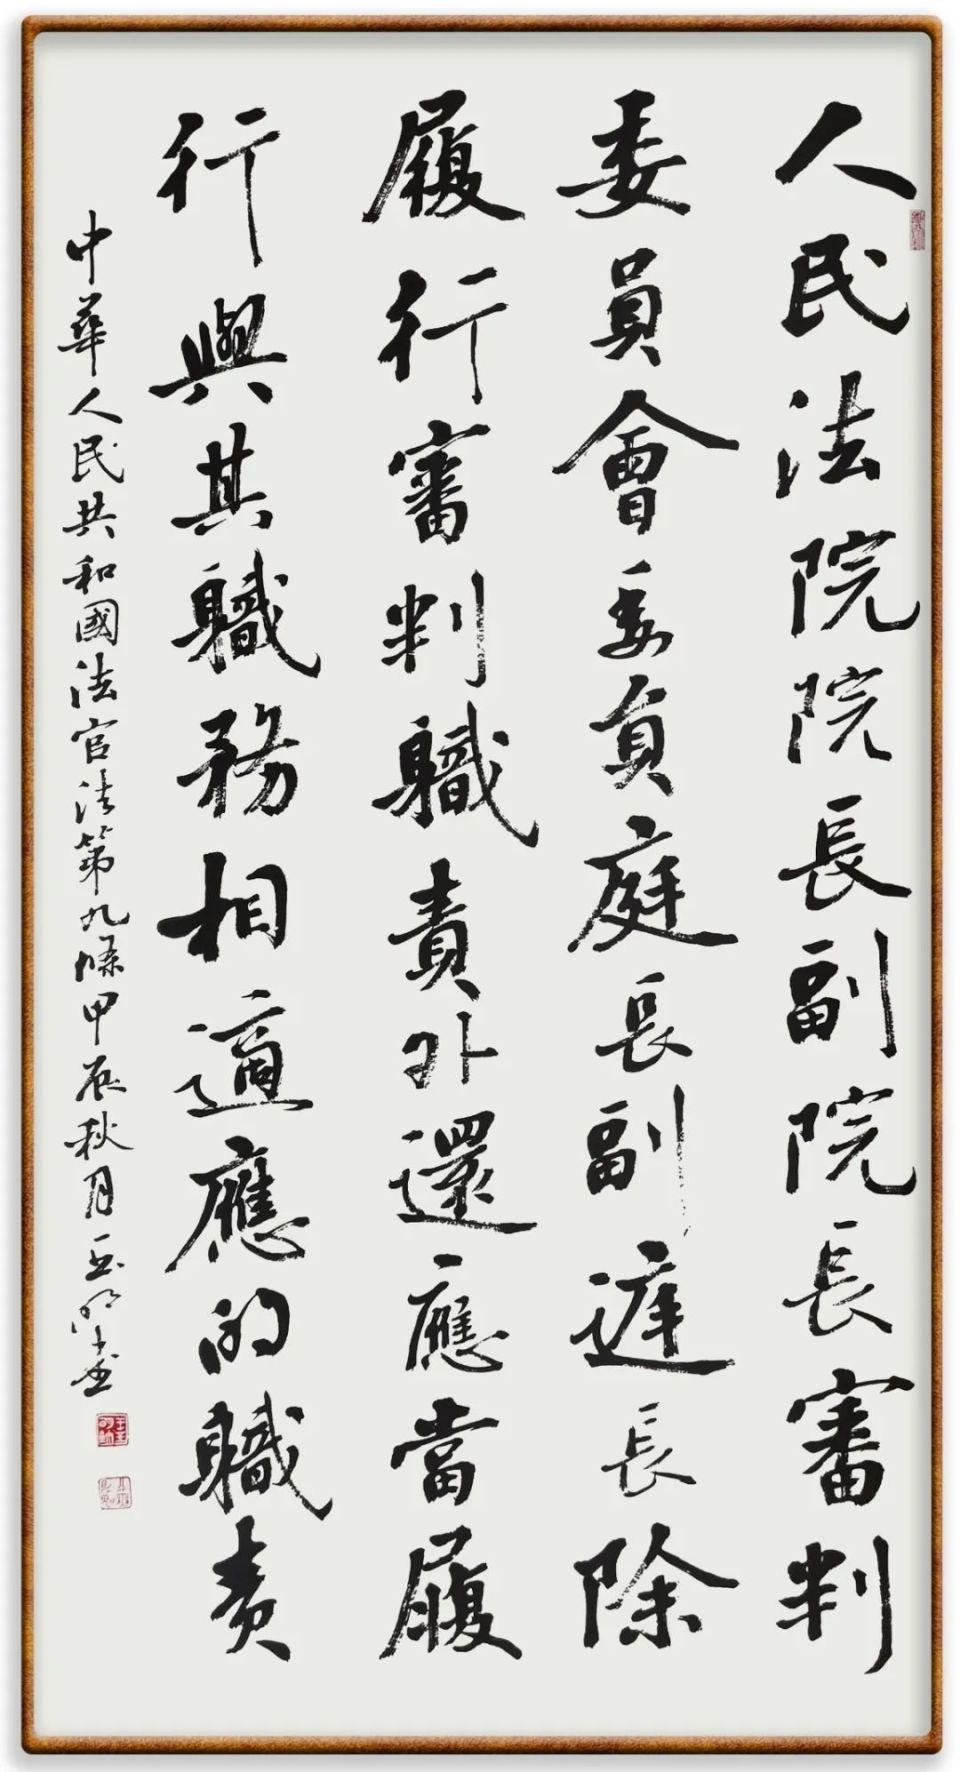 人民法院院長副院長審判
委員會委員庭長副庭長除
履行審判職責外還應當履
行與其職務相適應的職責
中華人民共和國法官法第九條甲辰秋月玉明书